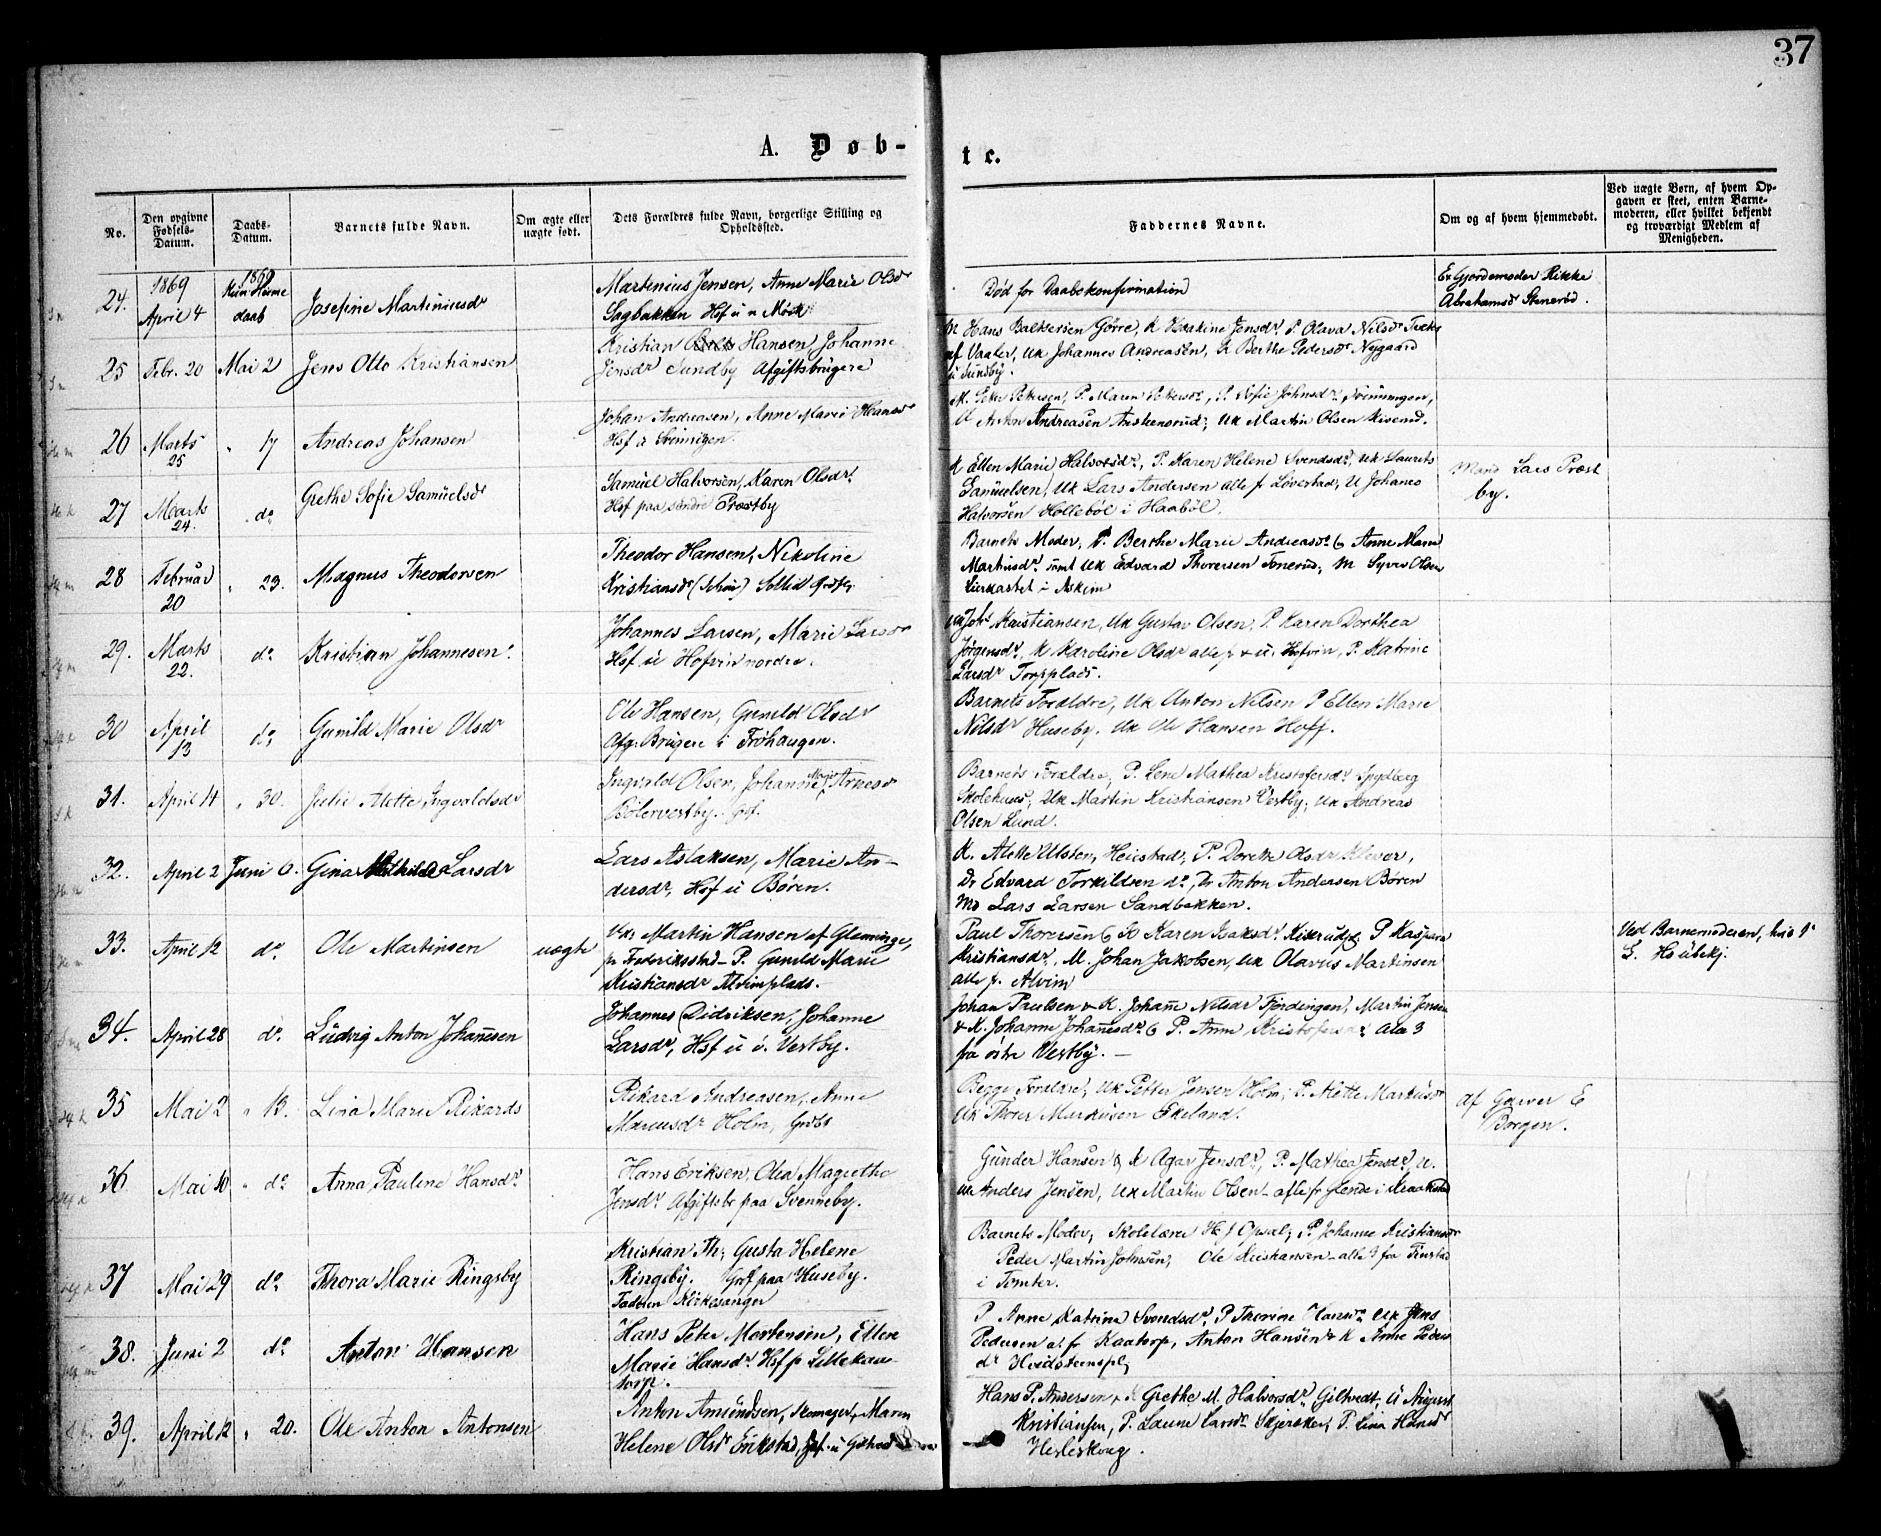 37
A. Døb-
te.
No.
Den opgivne Fødsels-Datum.
Daabs-Datum.
Barnets fulde Navn.
Om ægte eller uægte født.
Dets Forældres fulde Navn, borgerlige Stilling og Opholdssted.
Faddernes Navne.
Om og af hvem hjemmedøbt.
Ved uægte Børn, af hvem Opgaven er skeet, enten Barnemoderen, eller hvilket bekjendt og troværdigt Medlem af Menigheden.
24. 1869 April 4 1869 Kun Hjemedaab Josefine Martiniusdr
Martinius Jensen, Anne Marie Olsdr
Sagbakken Hsf u n Mørk
Død før Daabskonfirmation
Gjordemoder Rikke
Abrahamsdr Stenerød.
25 Febr. 20 Mai 2 Jens Otto Kristiansen
Kristian Hansen Johanne
Jensdr Sundby Afgiftsbrugere
M Hans Baltsersen Gørre, K Jensdr. P Olava Nilsdr
af Vaaler, Uk Johannes Andreasen, P. Berthe Pedersdr Nygaard
u Sundby.
26 Marts 25 " 17 Andreas Johansen
Johan Andreasen, Anne Marie Hansdr
Hsf u Svinnigen.
M. Peter Petersen, P. Maren Petersdr, P. Sofie Johnsdr, Svinningen,
U Anton Andreasen Askenrud; Uk Martin Olsen
27 Marts 24. " do Grethe Sofie Samuelsdr
Samuel Halvorsen, Karen Olsdr.
Hsf paa søndre Præstby
K Ellen Marie Halvorsdr, P. Karen Helene Svendsdr, Uk Laurits
Samuelsen, Uk Lars Andersen alle fr Løvestad; U Johanes
Halvorsen Hollebøl i Haabøl.
Mand Lars Præst
by.
28 Februar 20 " 23. Magnus Theodorsen
Theodor Hansen, Nikoline
Kristiansdr Sollid
Barnets Moder, P. Berthe Marie Andreasdr & Anne Marie
Martinsdr samt Uk Edvard Thoresen Tonerud, M Syver Olsen
i Askim
29. Marts 22. do Kristian Johannesen.
Johannes Larsen, Marie Larsdr
Hsf u Hofvin nordre.
Uk Johs Kristiansen, Uk Gustav Olsen, P. Karen Dorthea
Jørgensdr, K Karoline Olsdr alle fr & u. Hofvin, P. Katrine
Larsdr Torpplads.
30 April 13 do Gunild Marie Olsdr
Ole Hansen, Gunild Olsdr
Afg. Brugere i Frøhaugen.
Barnets Forældre, Uk Anton Nilsen P Ellen Marie
Nilsdr Huseby. Uk Ole Hansen Hoff.
31. April 4 " 30. Julie Alette Ingvoldsdr
Ingvald Olsen, Johanne Marie Arnesdr
Bølervestby. Hsf.
Barnets Forældre, P. Lene Mathea Kristofersdr Spydberg
Skolehus, Uk Martin Kristiansen Vestby, Uk Andreas
Olsen Lund.
32. April 2 Juni 6. Gina Mathilde Larsdr
Lars Aslaksen, Marie An-
dersdr, Hsf u Børen.
K. Alette Ulsten, Heiestad, P. Dorthe Olsdr Klever,
Dr Edvard Torkildsen do, Dr Anton Andersen Børen
Md Lars Larsen Sandbakken.
33. April 12 do Ole Martinsen uægte
Uk. Martin Hansen af Glemminge,
pr Frederiksstad – P. Gunild Marie
Kristiansdr Alvimplads.
Paul Thoresen & K Karen Isaksdr. P Kaspara
Kristiansdr, M. Johan Jakobsen, Uk Olavus Martinsen
alle fr. Alvim
Ved Barnemoderen,
34. April 28 do. Ludvig Anton Johannesen
Johannes Didriksen, Johanne
Larsdr, Hsf u ø. Vestby.
Johan Paulsen & K. Johane Nilsdr Fjerdingen, Martin Jensen
& K. Johanne Johanesdr & P. Anne Kristofersdr alle 3
fra østre Vestby. —
35 Mai 2 " 13. Lina Marie Rikards
Rikard Andreasen, Anne
Marcusdr Holm, Grdbr
Begge Forældre, Uk Petter Jensen Holm, P. Alette Markusdr
Uk Thorer Markusen Ekeland.
af Garver E
Borgen.
36. Mai 10 " do Anna Pauline Hansdr
Hans Eriksen, Olea Magrethe
Jensdr Afgiftsbr paa Svenneby.
Gunder Hansen & K Agar Jensdr, P. Mathea Jensdr, U.
Uk Anders Jensen, Uk Martin Olsen – alle fr Glende i Kraakstad
37 Mai 29 do Thora Marie Ringsby
Kristian Th, Gusta Helene
Ringsby. Hsf paa Huseby.
Faderen Kirkesanger
Barnets Moder, Skolelærer H J Opsal, P Johanne Kristiansdr
Peder Martin Johnsen, Ole Kristiansen – alle 3 fra
i Tomter.
38. Juni 2 do Anton Hansen
Hans Peter Mortensen, Ellen
Marie Hansdr Hsf p Lillekaa-
torp.
P Anne Katrine Svendsdr, P Thorine Hansdr Uk Jens
Pedersen al. fr Kaatorp, Anton Hansen & K Anne Peders
dr Hvidsteenspl
39. April 12 " 20. Ole Anton Antonsen
Anton Amundsen, Skomager, Maren
Helene Olsdr Erikstad,
Hans P. Andersen & K Grethe M. Halvorsdr Giltvedt, U August
Kristiansen, P. Laune Larsdr Skjeraker, P. Lina Hansdr
Herleskoug.